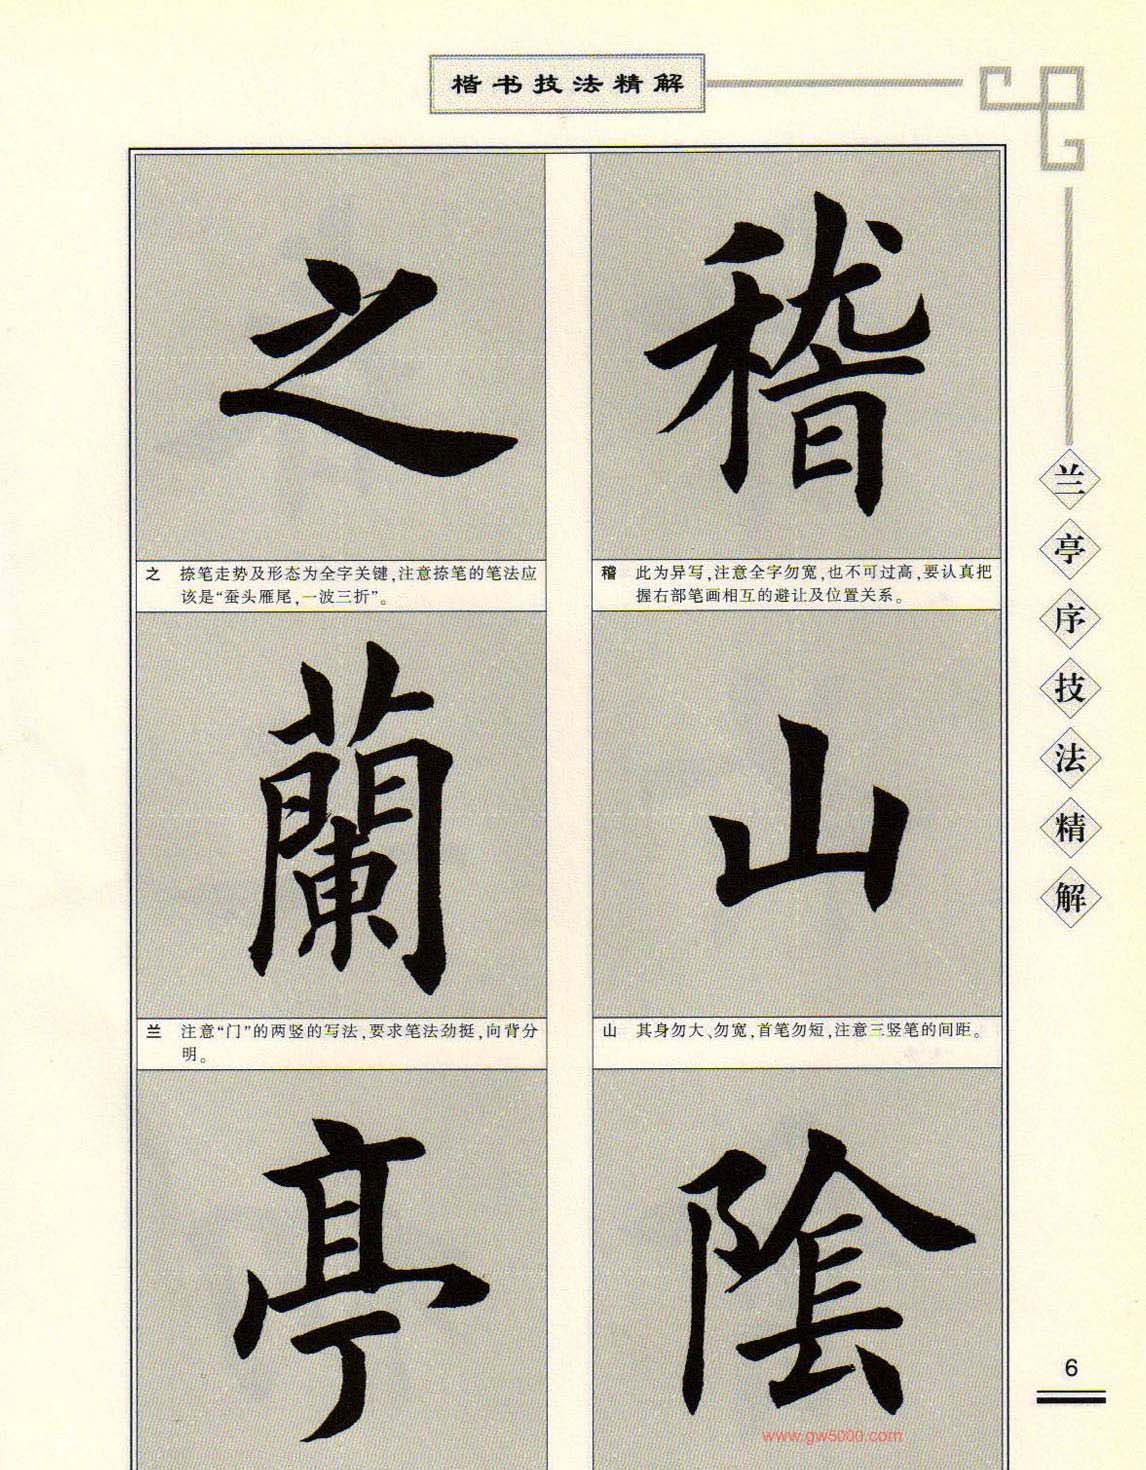 楷书技法精解
稽
稽 此为异写,注意全字勿宽,也不可过高,要认真把
握右部笔画相互的避让及位置关系。
山
山 其身勿大、勿宽,首笔勿短,注意三竖笔的间距。
陰
之
之 捺笔走势及形态为全字关键,注意捺笔的笔法应
该是“蚕头雁尾,一波三折”。
蘭
兰 注意“门”的两竖的写法,要求笔法劲挺,向背分
明。
亭
兰亭序技法精解
6
www.gw5000.com